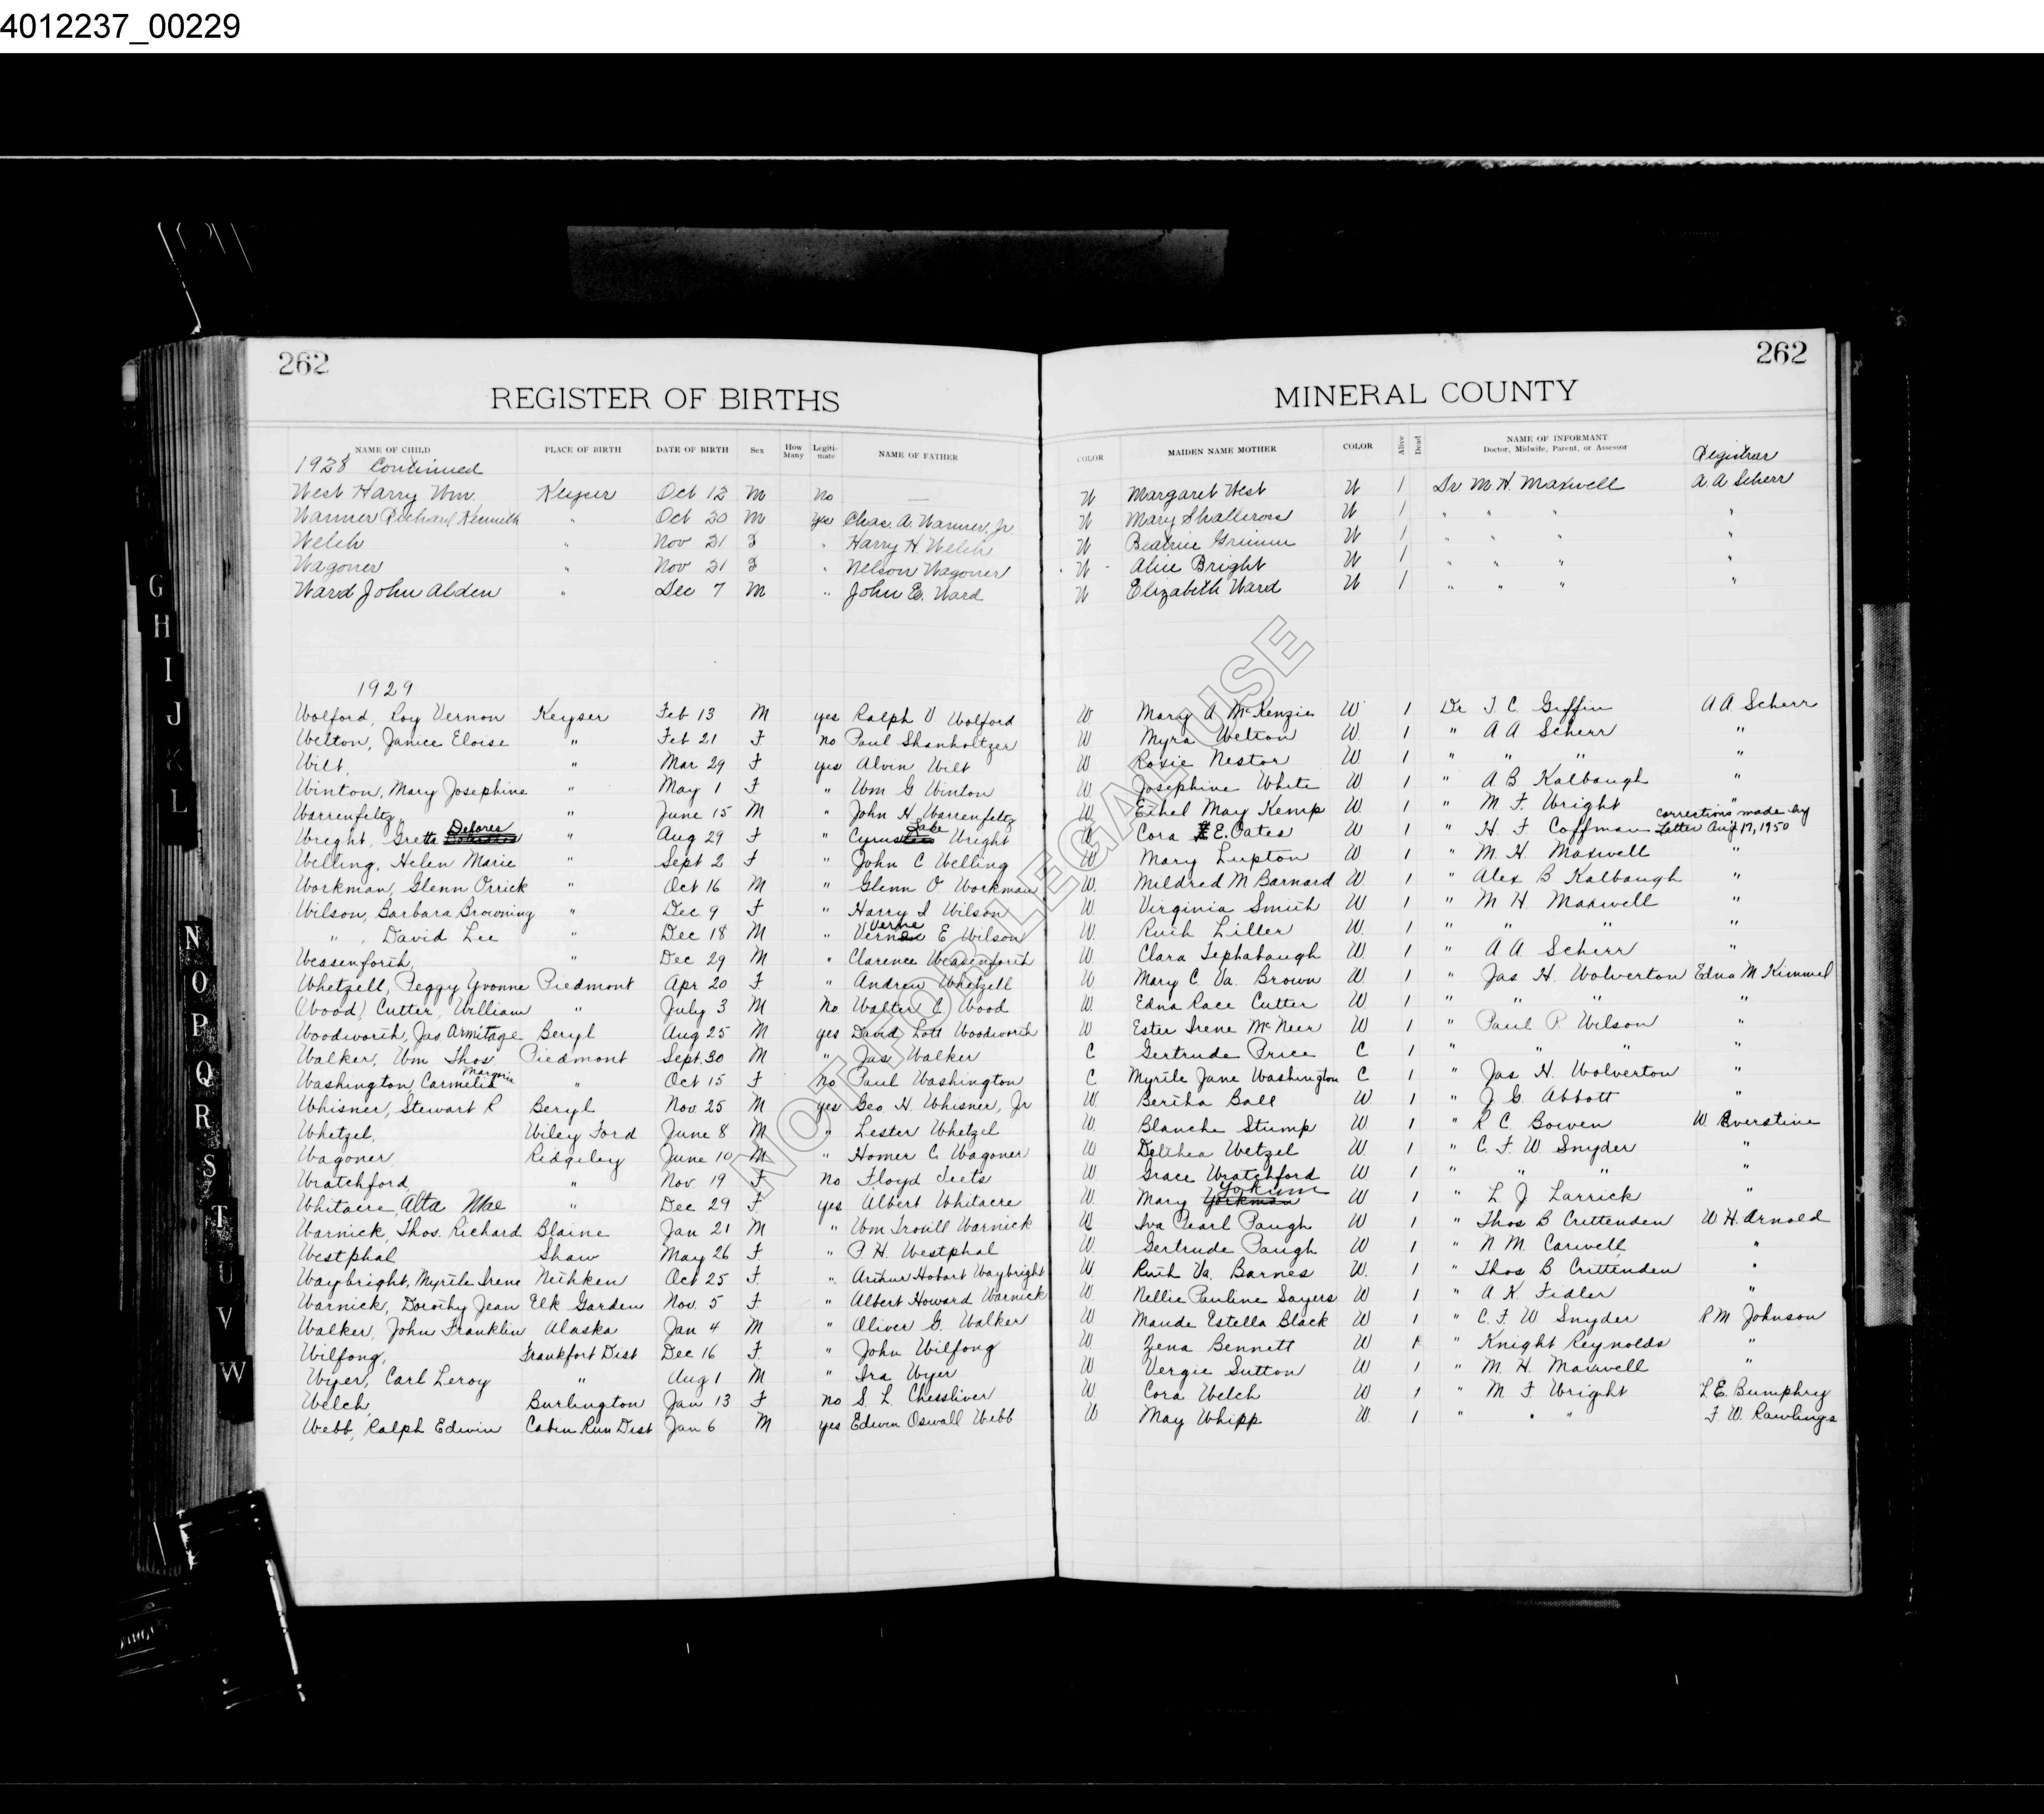 4012237_00229
262
262
REGISTER OF BIRTHS
MINERAL COUNTY
NAME OF CHILD PLACE OF BIRTH DATE OF BIRTH Sex How Many Legiti-mate NAME OF FATHER COLOR MAIDEN NAME MOTHER COLOR Alive Dead NAME OF INFORMANT Doctor, Midwife, Parent, or Assessor Registrar
1928 Continued
West Harry Wm. Keyser Oct 12 M No — W Margaret West W 1 Dr M. H. Maxwell A A Scherr
Warner Richard Kenneth " Oct 20 M Yes Chas. A. Warner, Jr. W Mary Shallcross W 1 " " " "
Welch " Nov 21 F " Harry H. Welch W Beatrice Grimm W 1 " " " "
Wagoner " Nov 21 F " Nelson Wagoner W Alice Bright W 1 " " " "
Ward John Alden " Dec 7 M " John E. Ward W Elizabeth Ward W 1 " " " "
1929
Wolford, Roy Vernon Keyser Feb 13 M yes Ralph V Wolford W Mary A McKenzie W 1 Dr T C Giffin A A Scherr
Welton, Janice Eloise " Feb 21 F No Paul Shanholtzer W Myra Welton W. 1 " A A Scherr "
Wilt, " Mar 29 F yes Alvin Wilt W Roxie Nestor W. 1 " " " "
Winton, Mary Josephine " May 1 F " Wm G Winton W Josephine White W. 1 " A B Kalbaugh "
Warrenfeltz, " June 15 M " John H. Warrenfeltz W Ethel May Kemp W. 1 " M F Wright "
Wright, Gretta Delores " Aug 29 F " Cyrus Jake Wright W Cora E. Oates W 1 " H. F Coffman Corrections made by Letter Aug 17, 1950
Welling, Helen Marie " Sept 2 F " John C Welling W Mary Lupton W. 1 " M. H. Maxwell "
Workman, Glenn Orrick " Oct 16 M " Glenn O Workman W. Mildred M Barnard W. 1 " Alex B Kalbaugh "
Wilson, Barbara Browning " Dec 9 F " Harry I Wilson W. Virginia Smith W. 1 " M H. Maxwell "
" , David Lee " Dec 18 M " Verne E Wilson W. Ruth Liller W. 1 " " " "
Weasenforth, " Dec 29 M " Clarence Weasenforth W. Clara Tephabaugh W. 1 " A A Scherr "
Whetzell, Peggy Yvonne Piedmont Apr 20 F " Andrew Whetzell W. Mary C Va. Brown W. 1 " Jas H. Wolverton Edna M Kimmel
(Wood) Cutter, William " July 3 M No Walter C Wood W. Edna Race Cutter W. 1 " " " "
Woodworth, Jas Armitage Beryl Aug 25 M yes David Lott Woodworth W. Ester Irene McNeer W 1 " Paul R Wilson "
Walker, Wm Thos Piedmont Sept. 30 M " Jas Walker C. Gertrude Price C 1 " " " "
Washington, Carmelia Margarie " Oct 15 F No Paul Washington C. Myrtle Jane Washington C 1 " Jas H. Wolverton "
Whisner, Stewart R Beryl Nov. 25 M yes Geo. H. Whisner, Jr W Bertha Ball W 1 " J. G. Abbott "
Whetzel, Wiley Ford June 8 M " Lester Whetzel W. Blanche Stump W 1 " R C. Bowen W Everstine
Wagoner, Ridgeley June 10 M " Homer C. Wagoner W. Delthea Wetzel W. 1 " C. F. W Snyder "
Wratchford, " Nov 19 F No Floyd Teets W Grace Wratchford W 1 " " " "
Whitacre, Alta Mae " Dec 29 F. yes Albert Whitacre W. Mary Yokum W 1 " L. J Larrick "
Warnick, Thos. Richard Blaine Jan 21 M " Wm Troxill Warnick W Iva Pearl Paugh W 1 " Thos B Crittenden W H. Arnold
Westphal Shaw May 26 F. " P H. Westphal W. Gertrude Paugh W 1 " N M. Carwell "
Waybright, Myrtle Irene Nethken Oct 25 F. " Arthur Hobart Waybright W. Ruth Va. Barnes W. 1 " Thos B Crittenden "
Warnick, Dorothy Jean Elk Garden Nov. 5 F " Albert Howard Warnick W. Nellie Pauline Sayers W 1 " A K Fidler "
Walker, John Franklin Alaska Jan 4 M " Oliver G. Walker W Maude Estella Black W 1 " C. F. W Snyder R M Johnson
Wilfong, Frankfort Dist Dec 16 F. " John Wilfong W Zena Bennett W 1 " Knight Reynolds "
Wyer, Carl Leroy " Aug 1 M " Ira Wyer W Vergie Sutton W 1 " M. H. Maxwell "
Welch, Burlington Jan 13 F No S. L. Chessliver W. Cora Welch W 1 " M F Wright L. E. Bumphry
Webb, Ralph Edwin Cabin Run Dist Jan 6 M yes Edwin Oswall Webb W May Whipp W. 1 " " " F. W. Rawlings
G
H
I
J
K
L
N
O
P
Q
R
S
T
U
V
W
NOT FOR LEGAL USE